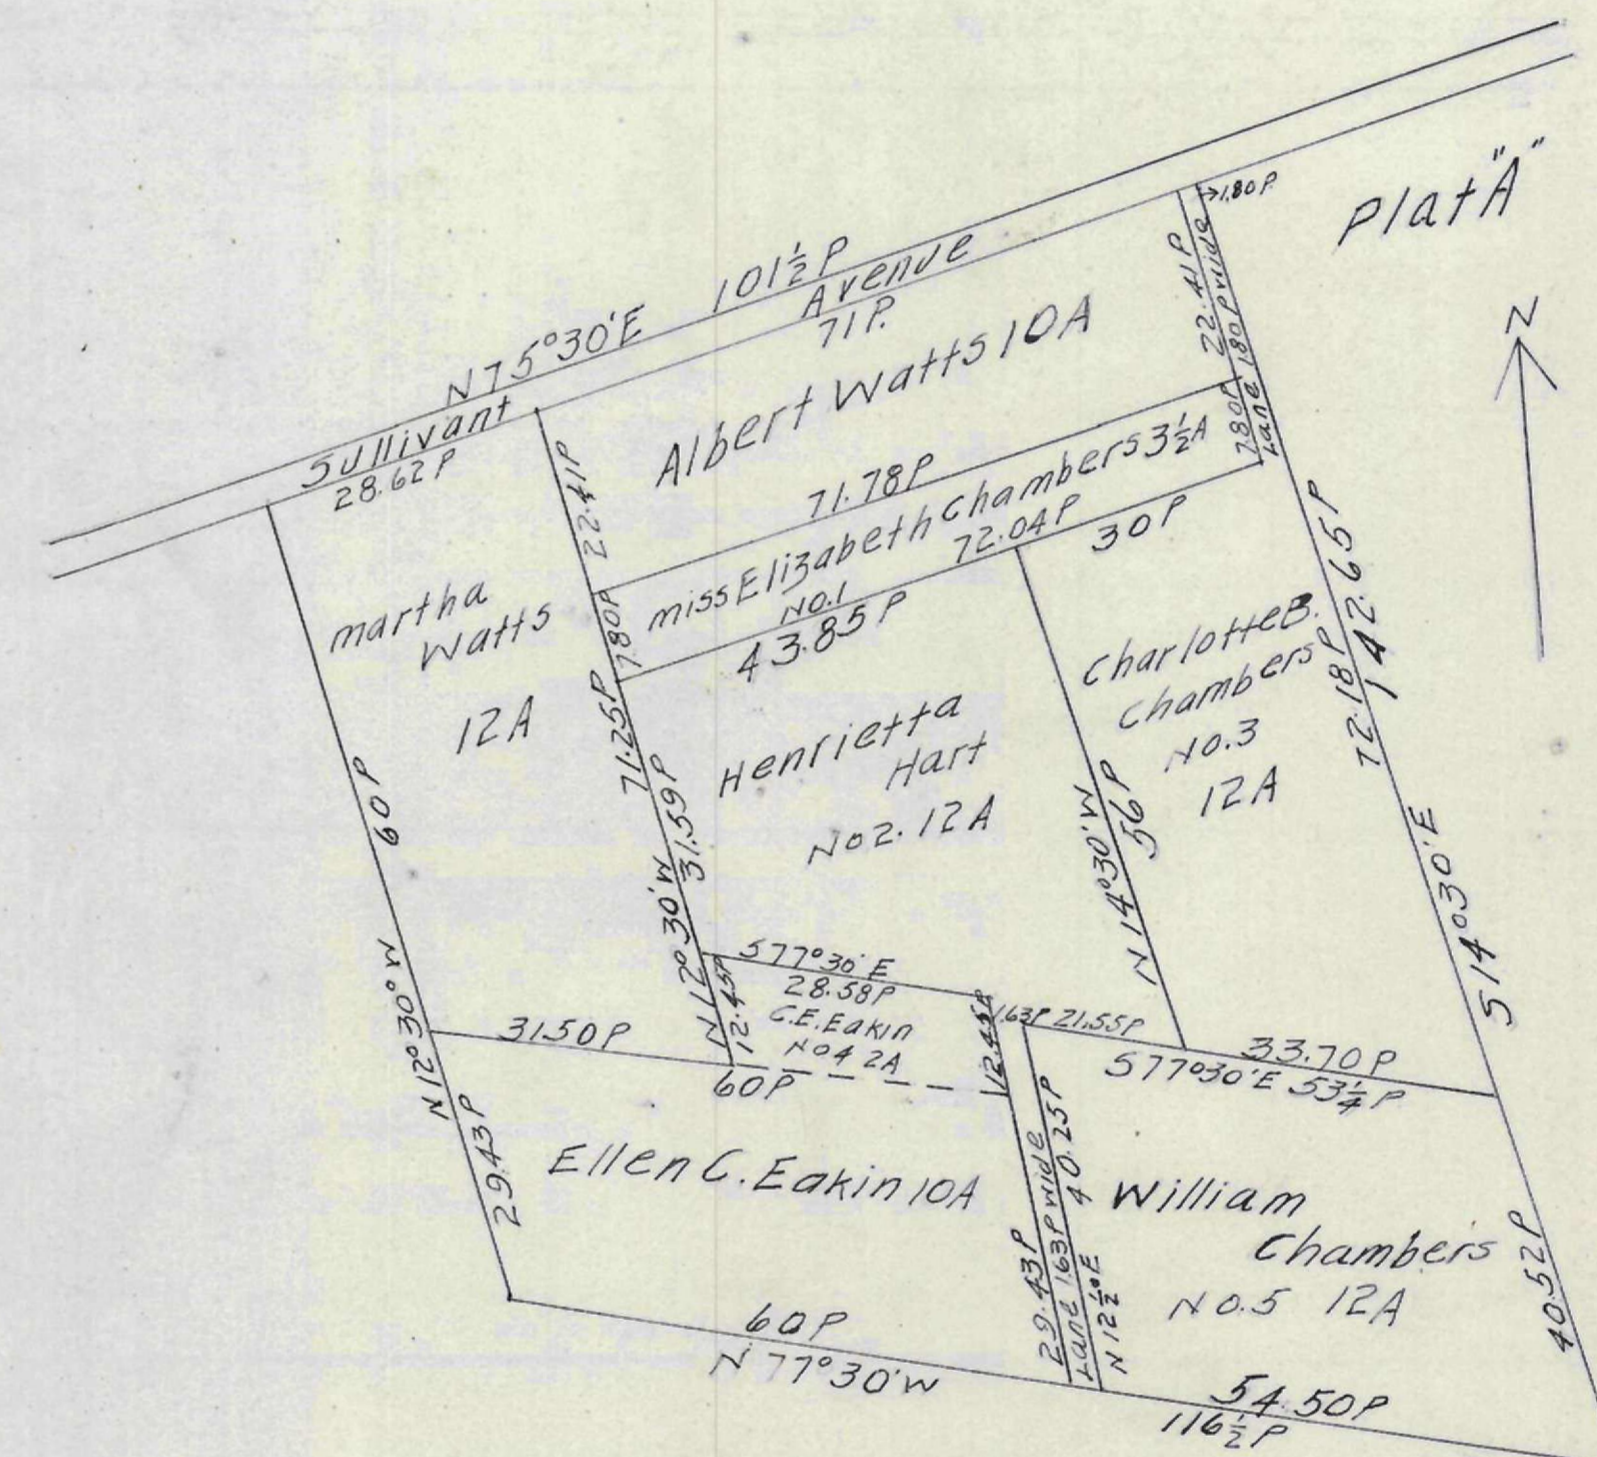 Plat "A"
N
N 75°30'E
101½ P
Sullivant Avenue
28.62 P
71 P.
→1.80 P.
Albert Watts 10 A
22.41 P
Lane 1.80 P wide
22.41 P
7.80 P
71.78 P
miss Elizabeth Chambers 3½ A
72.04 P
No.1
7.80 P
43.85 P
30 P
martha
Watts
12 A
71.25 P
Henrietta
Hart
No 2. 12 A
Charlotte B.
Chambers
No.3
12 A
72.18 P
142.65 P
60 P
31.59 P
N 14°30'W
56 P
S 14°30'E
N 12°30'W
N 12°30°W
S 77°30'E
28.58 P
C.E. Eakin
No 4 2A
12.45 P
12.45 P
1.63 P
21.55 P
33.70 P
S 77°30'E 53¼ P
31.50 P
60 P
29.43 P
Ellen C. Eakin 10 A
29.43 P
Lane 1.63 P wide
40.25 P
N 12½°E
William
Chambers
No.5 12 A
40.52 P
60 P
N 77°30'W
54.50 P
116½ P